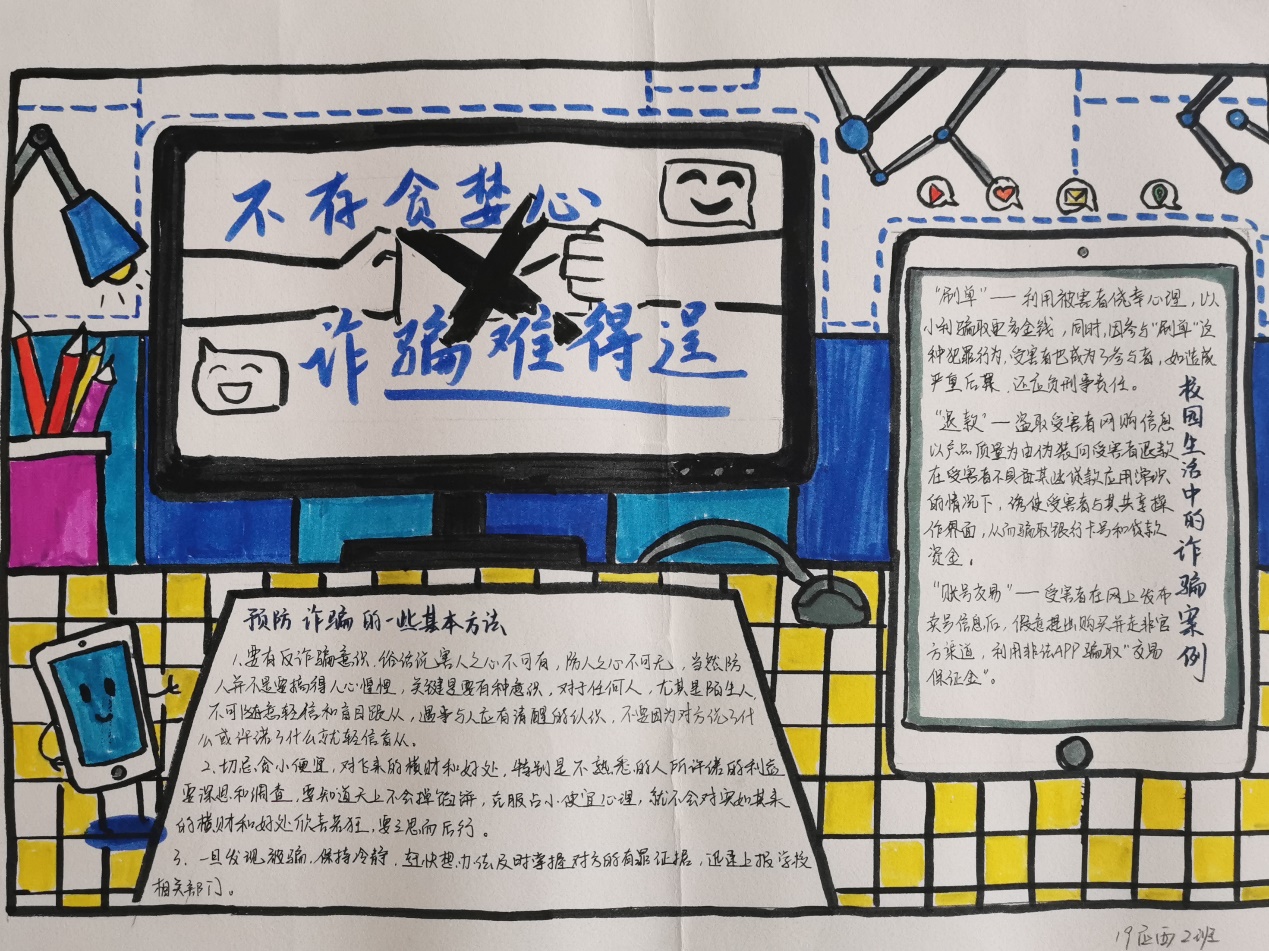 不存贪婪心
诈骗难得逞
"刷单"——利用被害者侥幸心理，以
小利骗取更多金钱，同时，因参与"刷单"这
种犯罪行为，受害者也成为了参与者，如造成
严重后果，还应负刑事责任。
"退款"——盗取受害者网购信息
以产品质量为由伪装向受害者退款
在受害者不具备某些贷款应用常识
的情况下，诱使受害者与其共享操
作界面，从而骗取银行卡号和贷款
资金。
"账号交易"——受害者在网上发布
卖号信息后，假意提出购买并走非官
方渠道，利用非法APP骗取"交易
保证金"。
校园生活中的诈骗案例
预防诈骗的一些基本方法
1.要有反诈骗意识，俗话说害人之心不可有，防人之心不可无，当然防
人并不是要搞得人心惶惶，关键是要有种意识，对于任何人，尤其是陌生人，
不可随意轻信和盲目跟从，遇事与人应有清醒的认识，不要因为对方说了什
么或许诺了什么就轻信盲从。
2.切忌贪小便宜，对飞来的横财和好处，特别是不熟悉的人所许诺的利益
要深思和调查，要知道天上不会掉馅饼，克服占小便宜心理，就不会对突如其来
的横财和好处欣喜若狂，要三思而后行。
3.一旦发现被骗，保持冷静，赶快想办法及时掌握对方的有罪证据，迅速上报学校
相关部门。